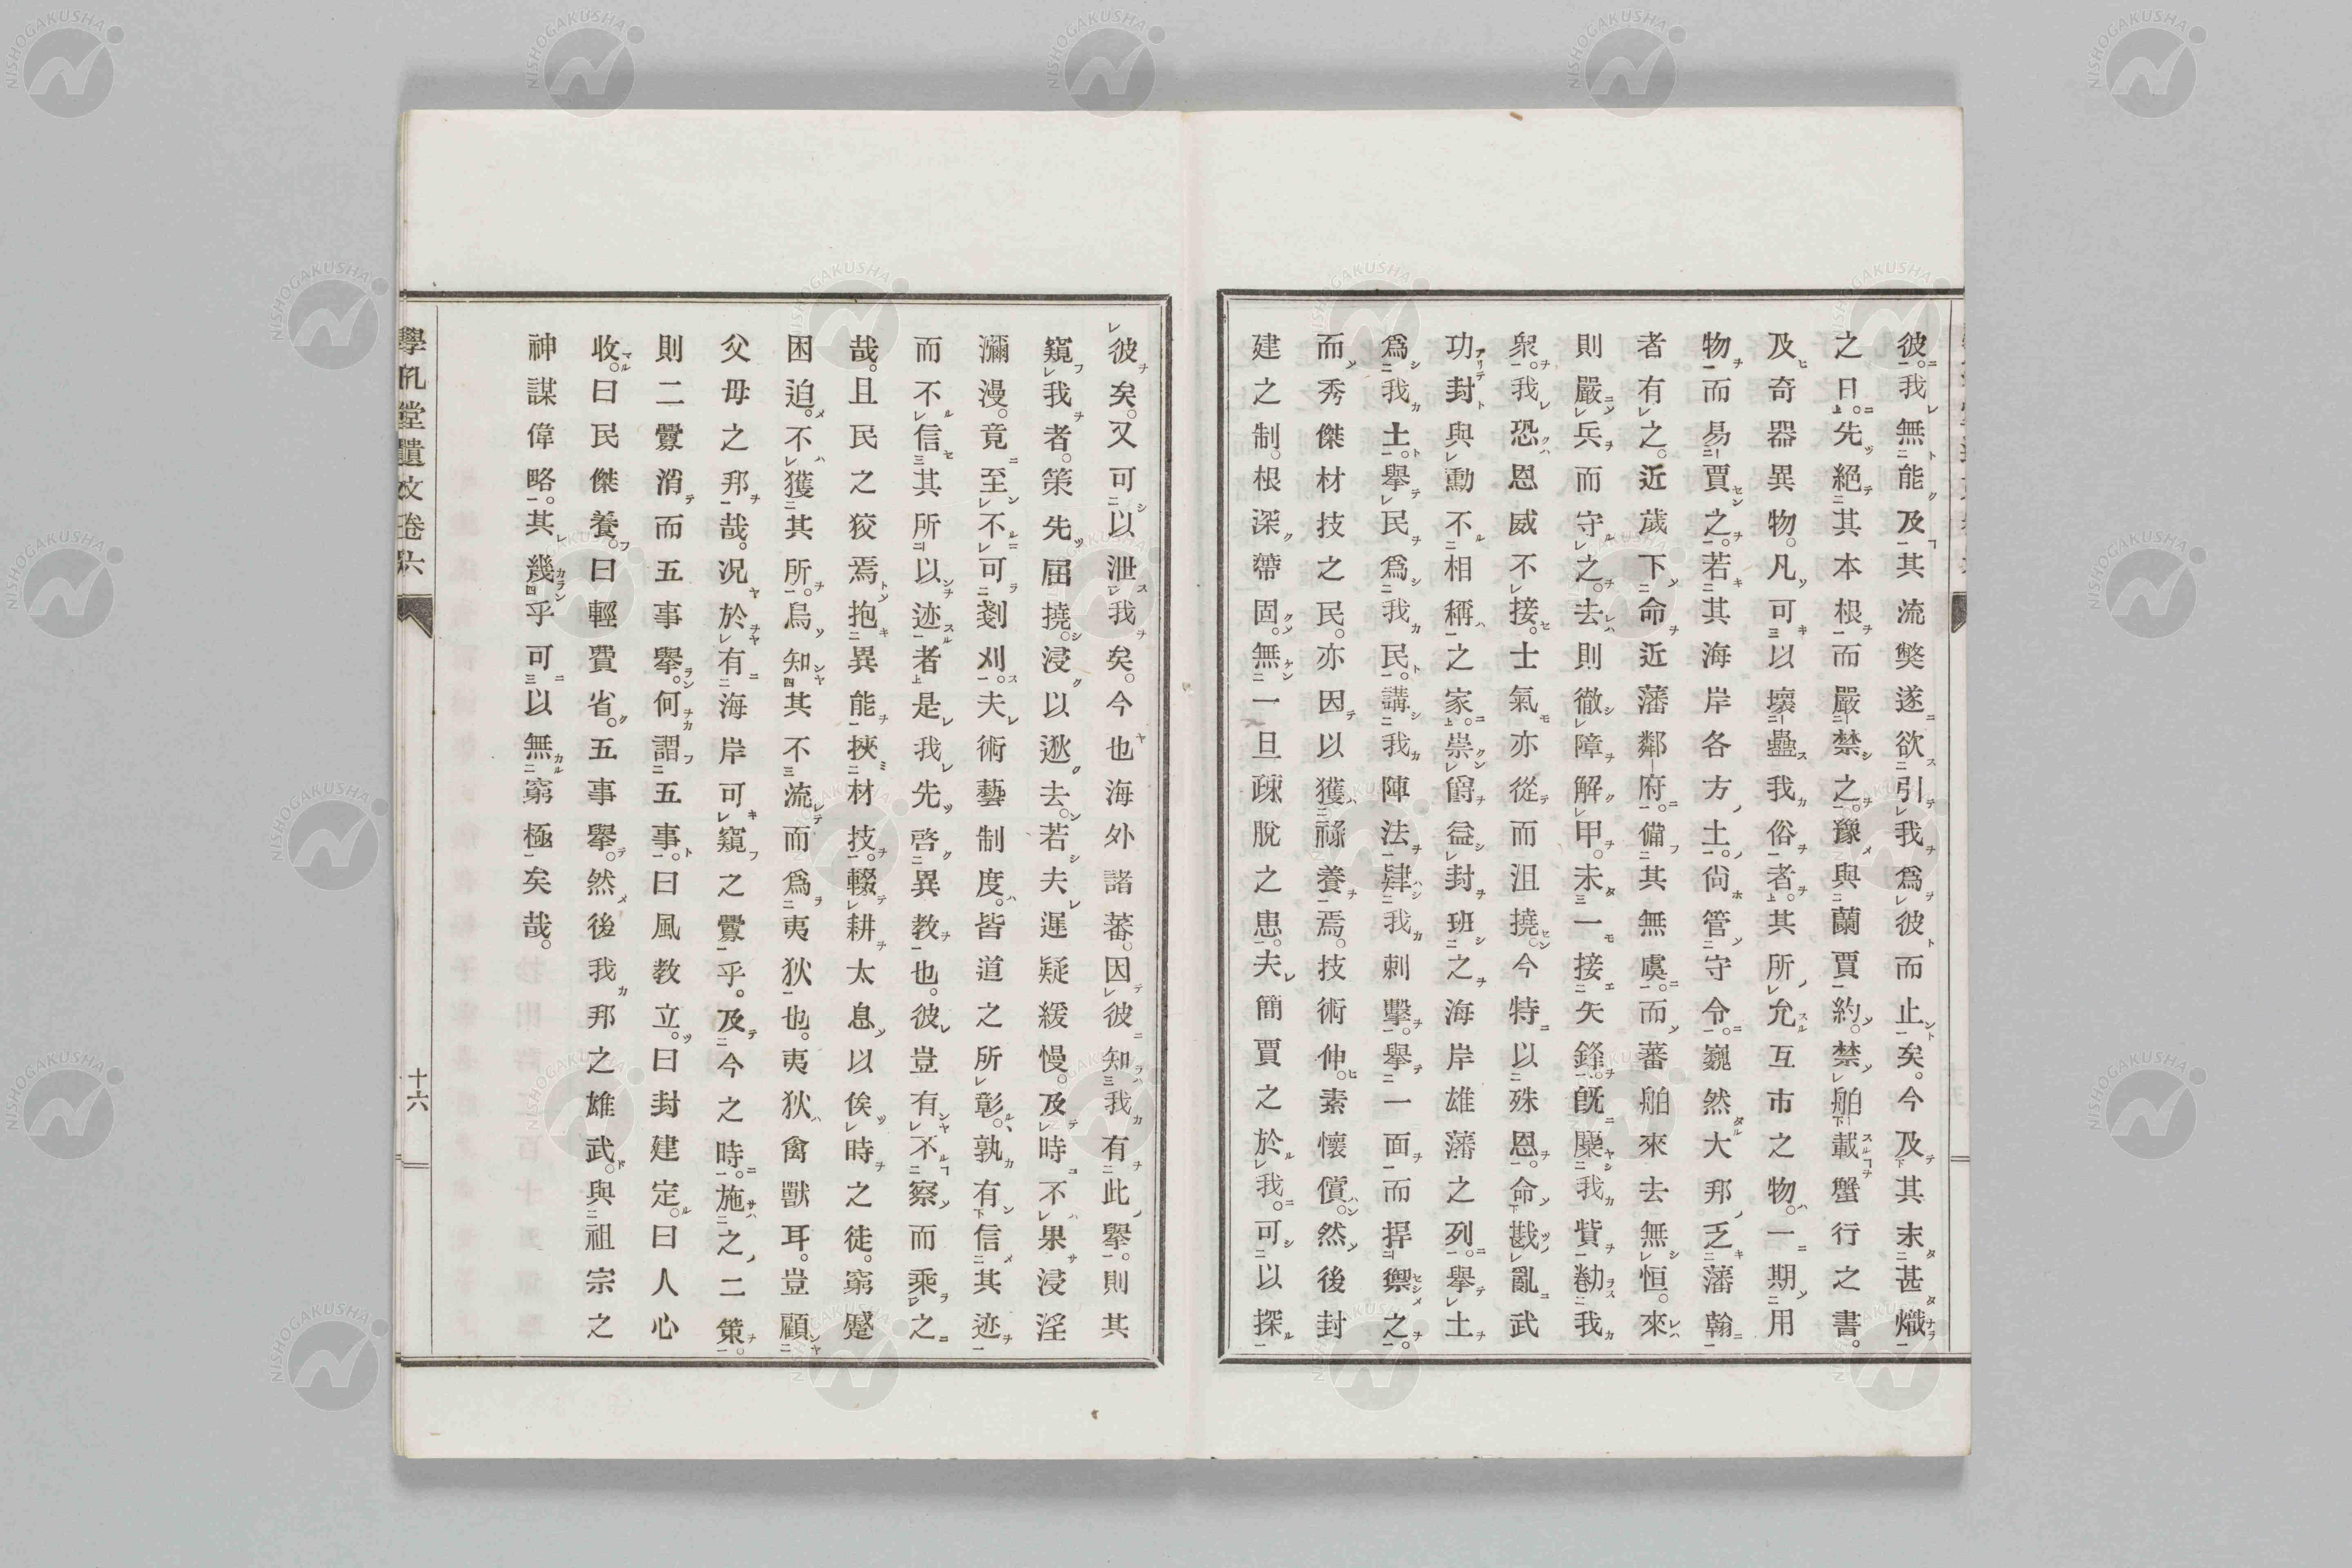 彼。我無能及其流獘遂欲引我爲彼而止矣。今及其末甚熾
之日。先絕其本根而嚴禁之。豫與蘭賈約。禁舶載蟹行之書。
及奇器異物。凡可以壞蠱我俗者。其所允互市之物。一期用
物而易賈之。若其海岸各方土。尙管守令。巍然大邦乏藩翰
者有之。近歲下命近藩鄰府。備其無虞。而蕃舶來去無恒。來
則嚴兵而守之。去則徹障解甲。未一接矢鋒。旣糜我貲勌我
衆。我恐恩威不接。士氣亦從而沮撓。今特以殊恩。命戡亂武
功封與勳不相稱之家。崇爵益封班之海岸雄藩之列。擧土
爲我土。擧民爲我民。講我陣法肄我刺擊。擧一面而捍禦之。
而秀傑材技之民。亦因以獲祿養焉。技術伸。素懷償。然後封
建之制。根深蔕固。無一旦疎脫之患。夫簡賈之於我。可以探
彼矣。又可以泄我矣。今也海外諸蕃。因彼知我有此擧。則其
窺我者。策先屈撓。浸以逖去。若夫遲疑緩慢。及時不果浸淫
瀰漫。竟至不可剗刈。夫術藝制度。皆道之所彰。孰有信其迹
而不信其所以迹者是我先啓異敎也。彼豈有不察而乘之
哉。且民之狡焉抱異能挾材技。輟耕太息以俟時之徒。窮蹙
困迫。不獲其所。烏知其不流而爲夷狄也。夷狄禽獸耳。豈顧
父母之邦哉。况於有海岸可窺之釁乎。及今之時。施之二策。
則二釁消而五事擧。何謂五事。曰風敎立。曰封建定。曰人心
收。曰民傑養。曰輕費省。五事擧。然後我邦之雄武。與祖宗之
神謀偉略。其幾乎可以無窮極矣哉。
學孔堂遺文卷六
十六